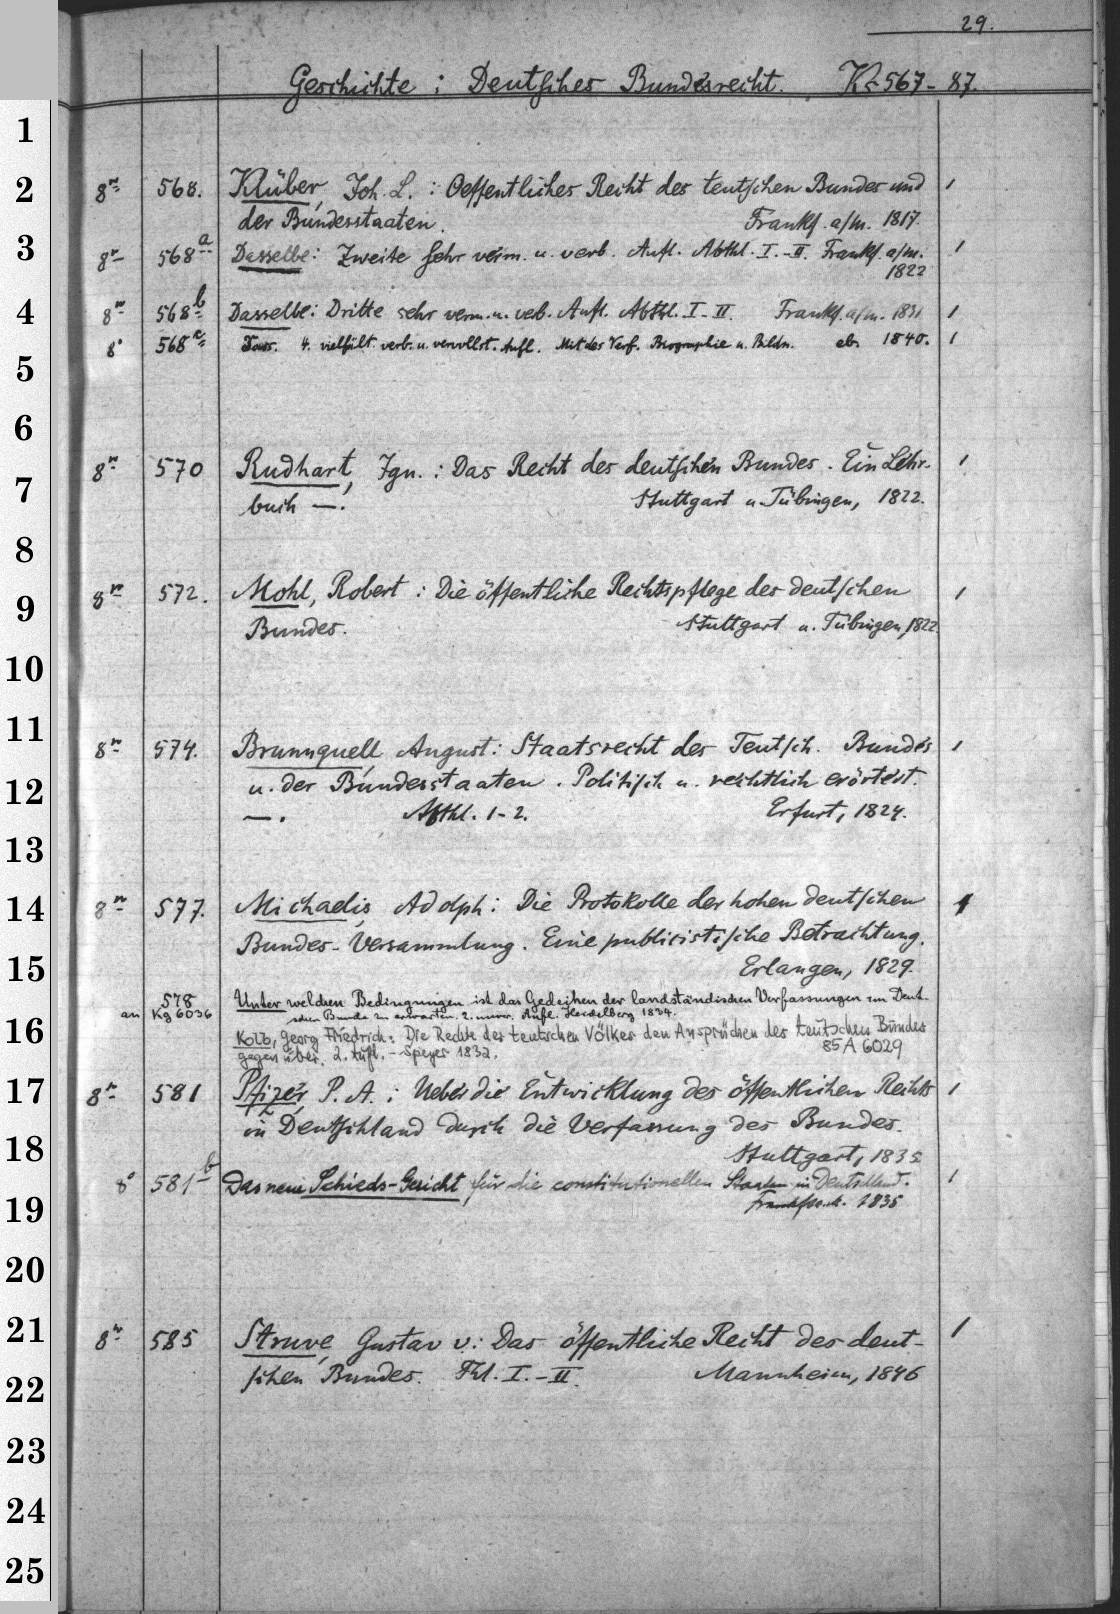 29.
Geschichte: Deutsches Bundesrecht. Kg 567-87.
1
2
8º 568. Klüber, Joh. L.: Oeffentliches Recht des teutschen Bundes und 1
der Bundesstaaten. Frankf. a/m. 1817.
3
8º 568a Dasselbe: Zweite sehr verm. u. verb. Aufl. Abthl. I.-II. Frankf. a/m. 1
1822
4
8º 568b Dasselbe: Dritte sehr verm. u. verb. Aufl. Abthl. I-II. Frankf. a/m. 1831 1
8º 568c Dass. 4. vielfält. verb. u. vervollst. Aufl. Mit des Verf. Biographie u. Bildn. eb. 1840. 1
5
6
8º 570 Rudhart, Ign.: Das Recht des deutschen Bundes. Ein Lehr- 1
7
buch —. Stuttgart u. Tübingen, 1822.
8
8º 572. Mohl, Robert: Die öffentliche Rechtspflege des deutschen 1
9
Bundes. Stuttgart u. Tübingen, 1822
10
11
8º 574. Brunnquell, August: Staatsrecht des Teutsch. Bundes 1
12
u. der Bundesstaaten. Politisch u. rechtlich erörtert.
—. Abthl. 1-2. Erfurt, 1824.
13
14
8º 577. Michaelis, Adolph: Die Protokolle der hohen deutschen 1
Bundes-Versammlung. Eine publicistische Betrachtung.
15
Erlangen, 1829.
578 Unter welchen Bedingungen ist das Gedeihen der landständischen Verfassungen im Deut-
an Kg 6036 schen Bunde zu erwarten. 2. unver. Aufl. Heidelberg 1834.
16
Kolb, Georg Friedrich: Die Rechte des teutschen Völker den Ansprüchen des teutschen Bundes
gegenüber. 2. Aufl. - Speyer 1832. 85 A 6029
17
8º 581 Pfizer, P. A.: Ueber die Entwicklung des öffentlichen Rechts 1
in Deutschland durch die Verfassung des Bundes.
18
Stuttgart, 1835
8º 581b Das neue Schieds-Gericht für die constitutionellen Staaten in Deutschland. 1
19
Frankfurt. 1835
20
21
8º 585 Struve, Gustav v.: Das öffentliche Recht des deut- 1
22
schen Bundes. Thl. I.-II. Mannheim, 1846
23
24
25